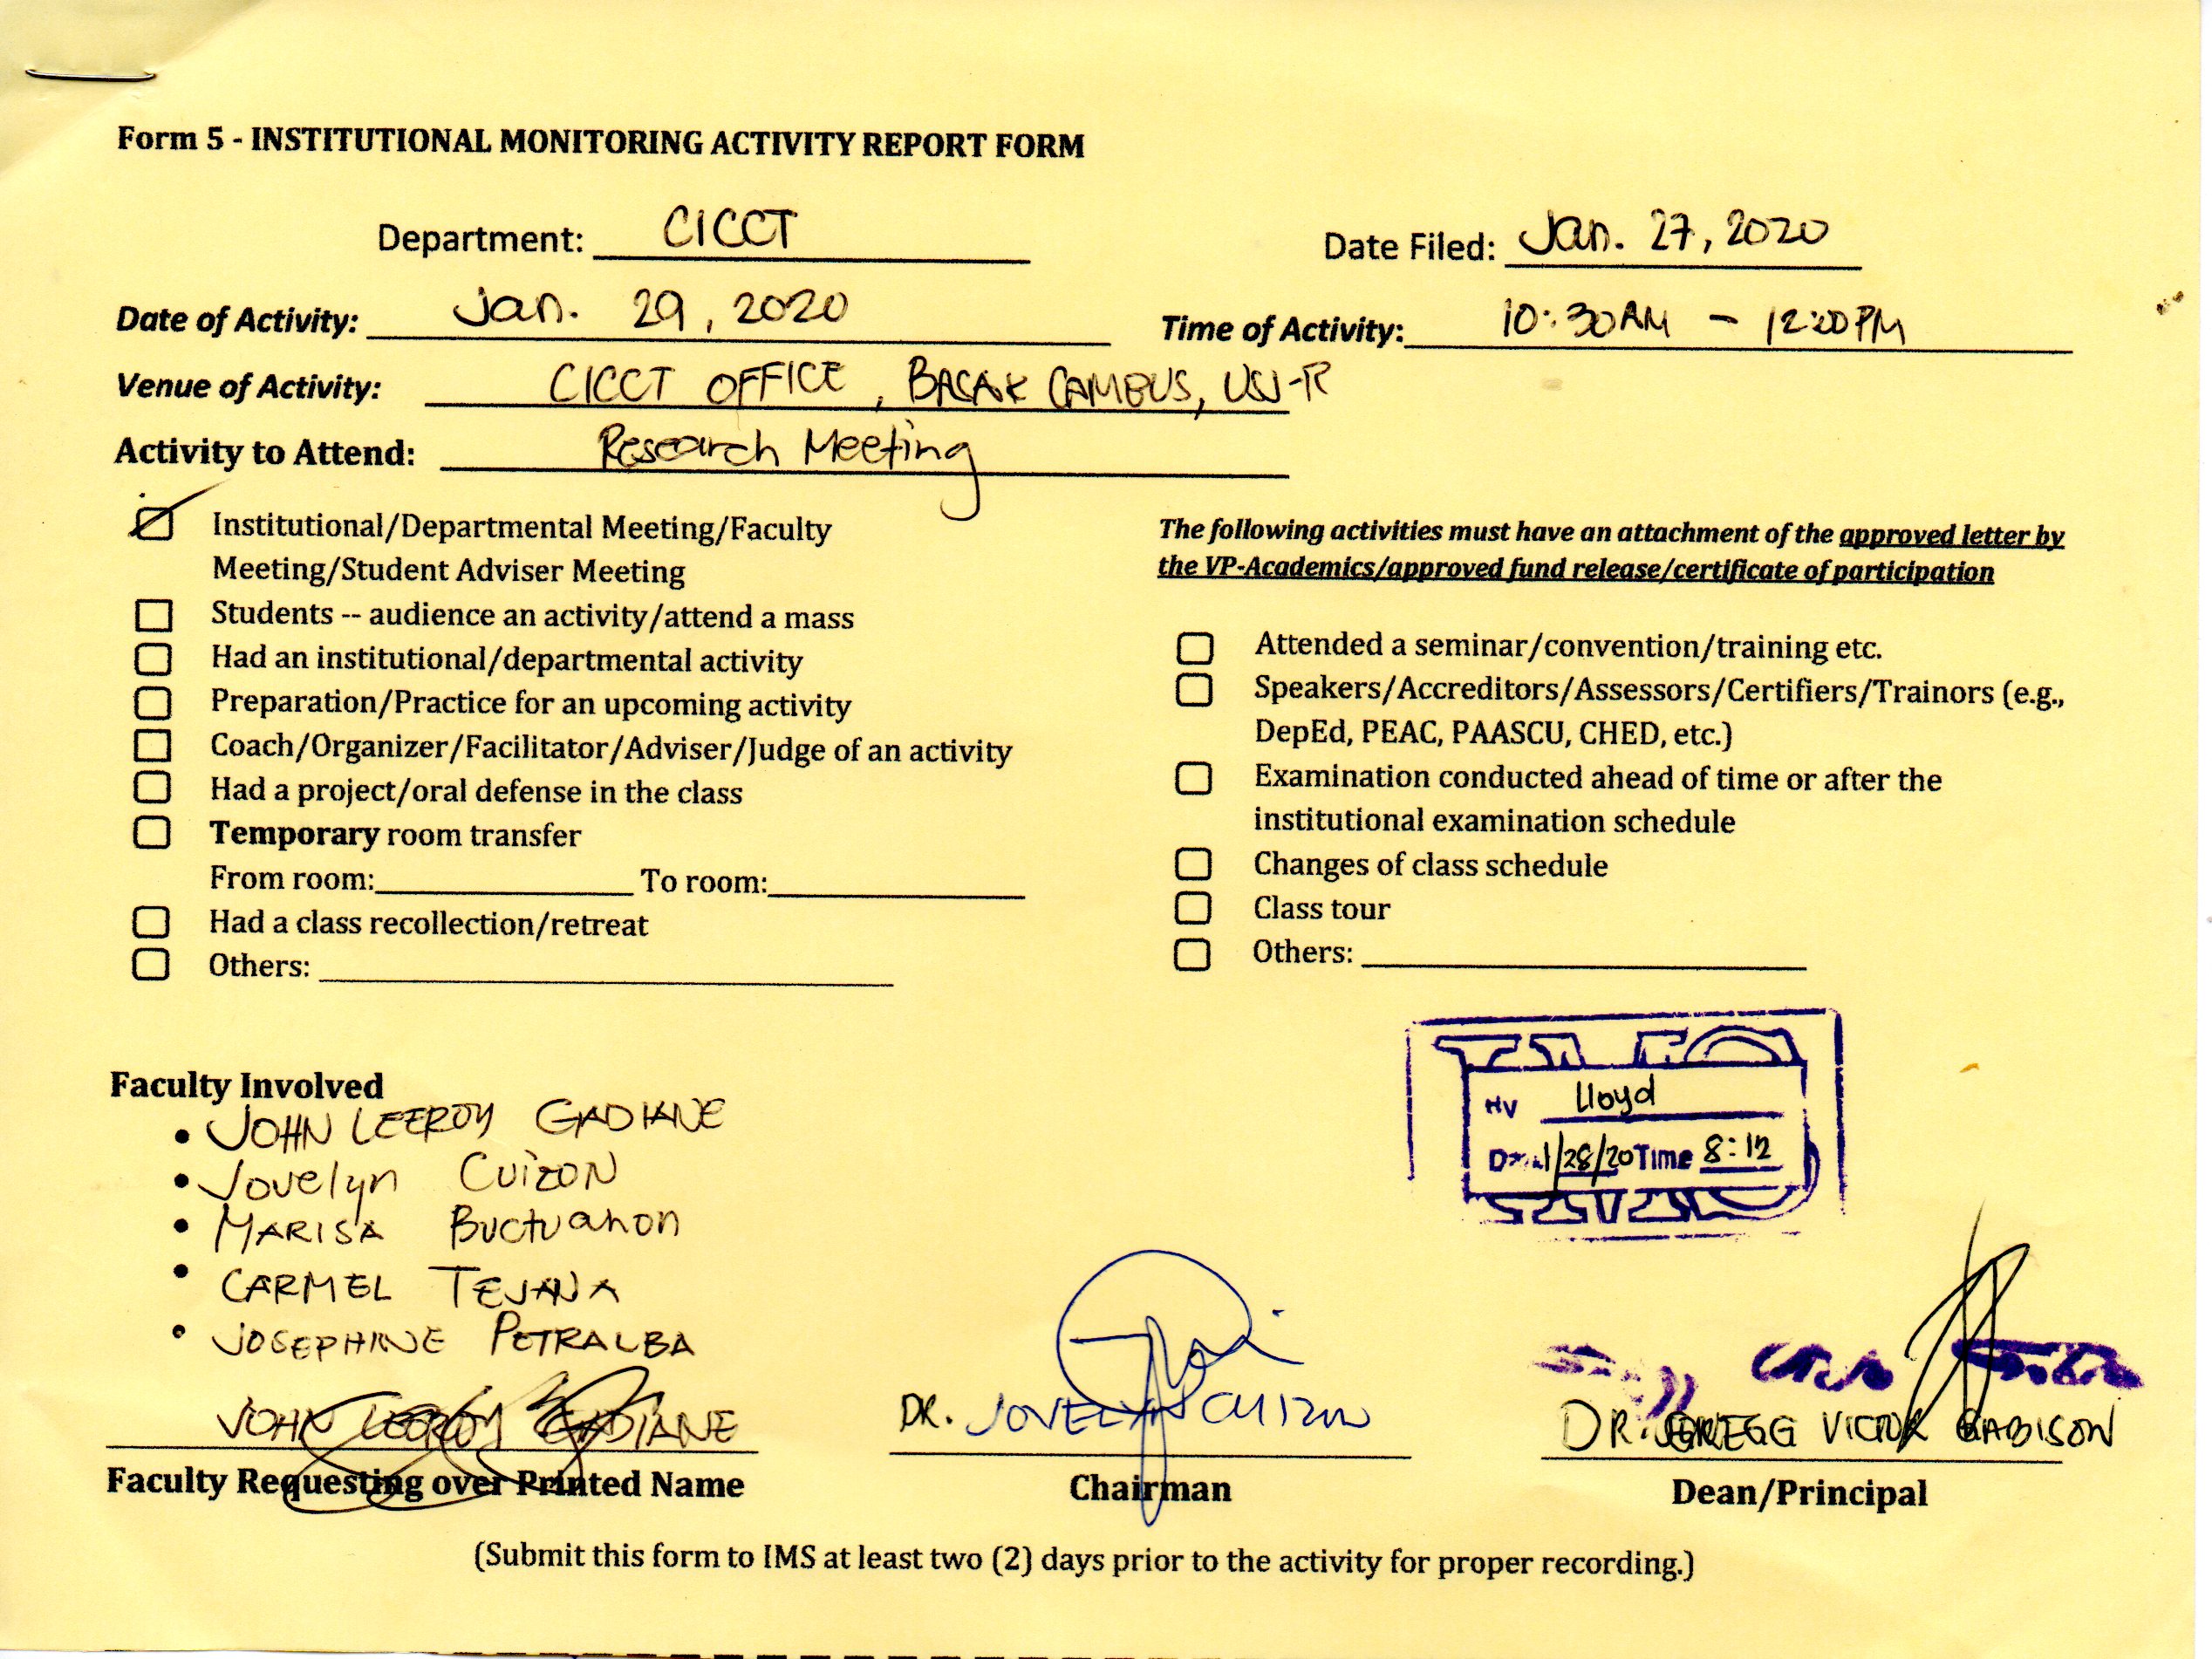 Form 5 - INSTITUTIONAL MONITORING ACTIVITY REPORT FORM
Department: CICCT
Date Filed: Jan. 27, 2020
Date of Activity: Jan. 29, 2020
Time of Activity: 10:30AM - 12:00PM
Venue of Activity: CICCT OFFICE, BASAK CAMPUS, USJ-R
Activity to Attend: Research Meeting
Institutional/Departmental Meeting/Faculty
Meeting/Student Adviser Meeting
Students -- audience an activity/attend a mass
Had an institutional/departmental activity
Preparation/Practice for an upcoming activity
Coach/Organizer/Facilitator/Adviser/Judge of an activity
Had a project/oral defense in the class
Temporary room transfer
From room: To room:
Had a class recollection/retreat
Others:
The following activities must have an attachment of the approved letter by
the VP-Academics/approved fund release/certificate of participation
Attended a seminar/convention/training etc.
Speakers/Accreditors/Assessors/Certifiers/Trainors (e.g.,
DepEd, PEAC, PAASCU, CHED, etc.)
Examination conducted ahead of time or after the
institutional examination schedule
Changes of class schedule
Class tour
Others:
Lloyd
1/28/20 Time 8:12
Faculty Involved
• JOHN LEEROY GADIANE
• Jovelyn CUIZON
• MARISA Buctuanon
• CARMEL TEJANA
• JOSEPHINE PETRALBA
JOHN LEEROY GADIANE
Faculty Requesting over Printed Name
DR. JOVELYN CUIZON
Chairman
DR. GREGG VICTOR GABISON
Dean/Principal
(Submit this form to IMS at least two (2) days prior to the activity for proper recording.)